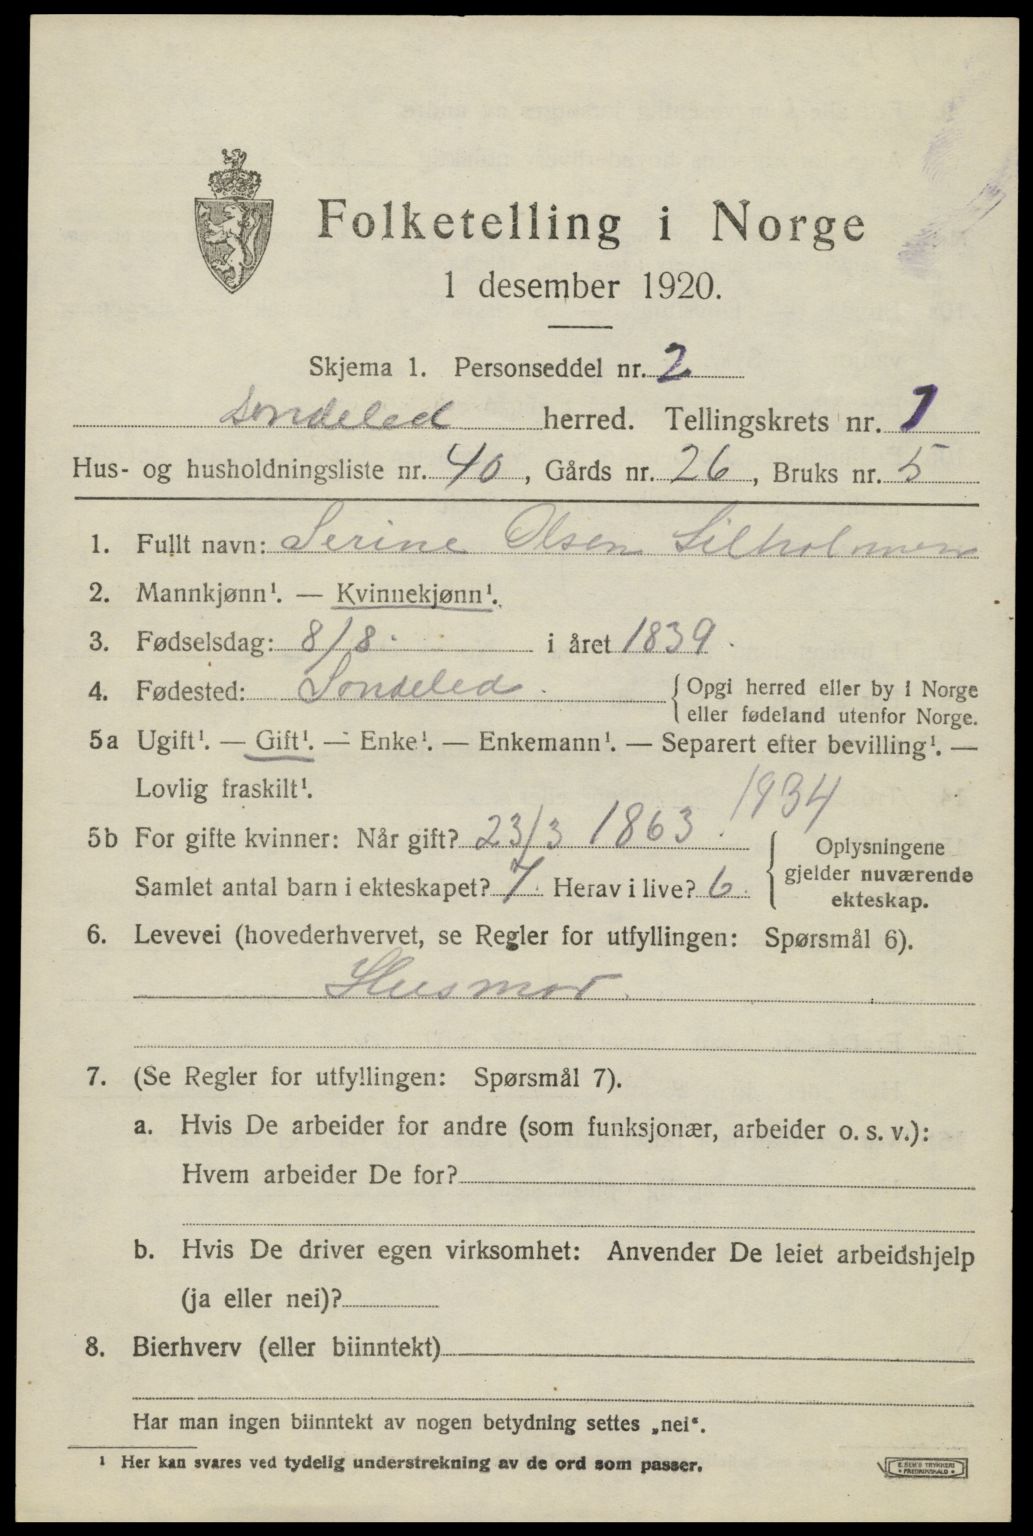 Folketelling i Norge
1 desember 1920.
Skjema 1. Personseddel nr. 2
Søndeled herred. Tellingskrets nr. 1
Hus- og husholdningsliste nr. 40, Gårds nr. 26, Bruks nr. 5
1. Fullt navn: Serine Olsen Silholmen
2. Mannkjønn¹. — Kvinnekjønn¹.
3. Fødselsdag: 8/8. i året 1839.
4. Fødested: Søndeled. {Opgi herred eller by i Norge
eller fødeland utenfor Norge.
5a Ugift¹. — Gift¹. — Enke¹. — Enkemann¹. — Separert efter bevilling¹. —
Lovlig fraskilt¹.
1934
5b For gifte kvinner: Når gift? 23/3 1863. { Oplysningene
Samlet antal barn i ekteskapet? 7. Herav i live? 6. gjelder nuværende
ekteskap.
6. Levevei (hovederhvervet, se Regler for utfyllingen: Spørsmål 6).
Husmor.
7. (Se Regler for utfyllingen: Spørsmål 7).
a. Hvis De arbeider for andre (som funksjonær, arbeider o. s. v.):
Hvem arbeider De for?
b. Hvis De driver egen virksomhet: Anvender De leiet arbeidshjelp
(ja eller nei)?
8. Bierhverv (eller biinntekt)
Har man ingen biinntekt av nogen betydning settes „nei“.
¹ Her kan svares ved tydelig understrekning av de ord som passer.
E. SEM'S TRYKKERI
• FREDRIKSHALD •